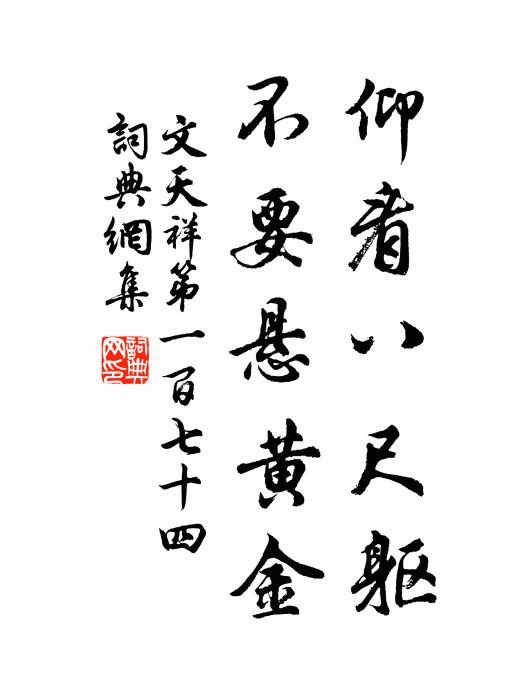 仰看八尺躯
不要悬黄金
文天祥第一百七十四
詞典網集
詞典网印